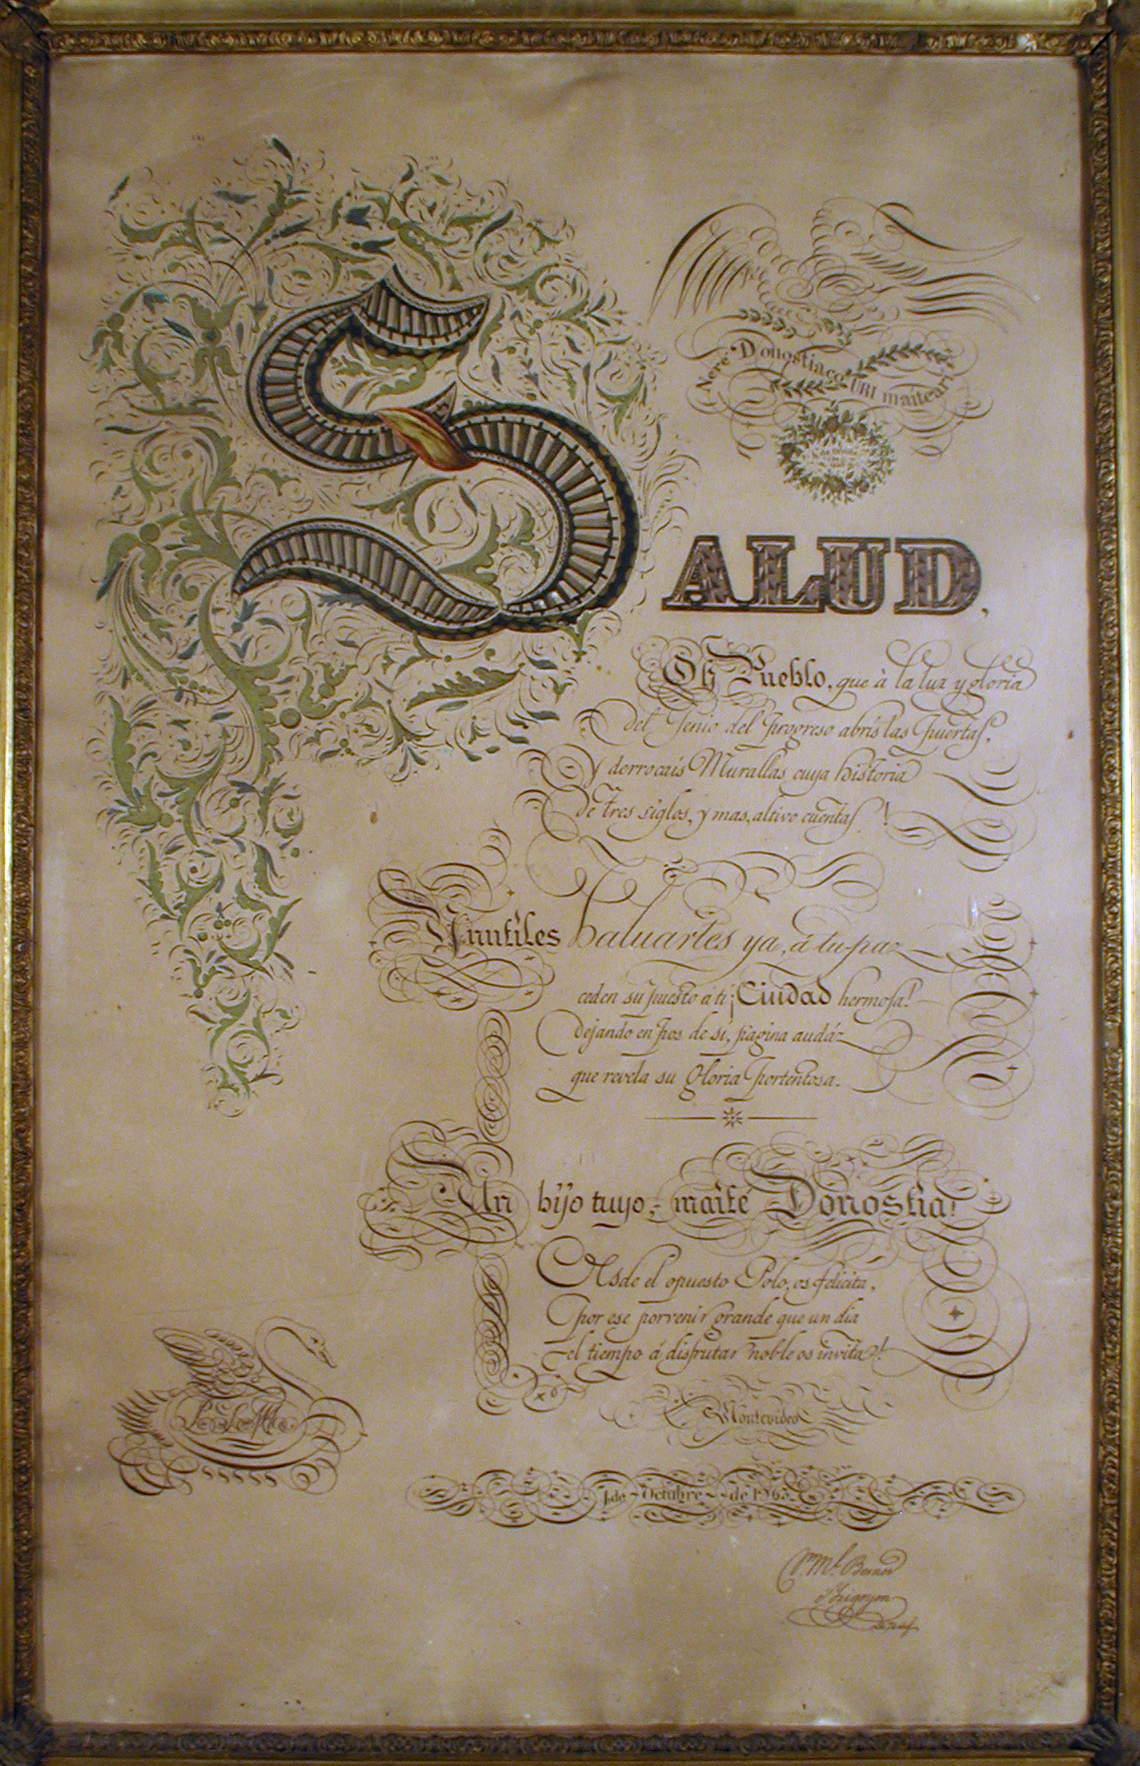 Nere Donostiaco URI maiteari
SALUD,
Oh Pueblo, que à la luz y gloria
del Genio del Progreso abris las Puertas,
Y derrocais Murallas cuya historia
de tres siglos, y mas, altivo cuentas!
Inutiles baluartes ya, á tu paz
ceden su puesto á ti ¡Ciudad hermosa!
Dejando en pos de si, pagina audáz
que revela su Gloria Portentosa.
Un hijo tuyo, maite Donostia!
Desde el opuesto Polo, os felicita,
Por ese porvenir grande que un dia
el tiempo á disfrutar noble os invita!
Montevideo
1 de Octubre de